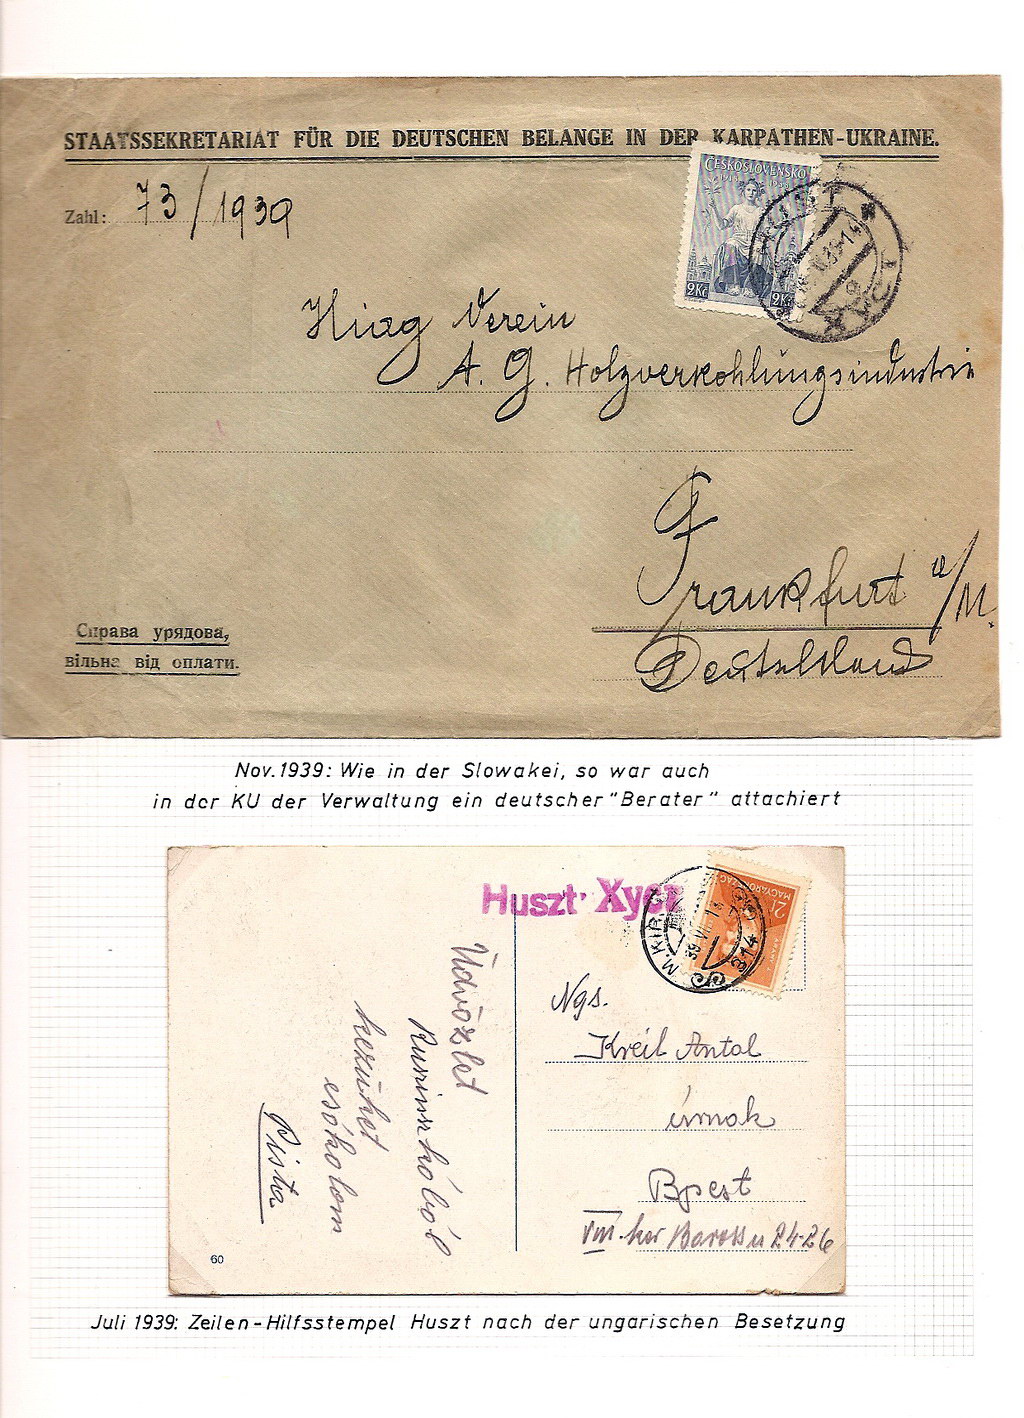 STAATSSEKRETARIAT FÜR DIE DEUTSCHEN BELANGE IN DER KARPATHEN-UKRAINE.
Zahl: 73/1939
ČESKOSLOVENSKO
2Kč 2Kč
Hiag Verein
A. G. Holzverkohlungsindustrie
Frankfurt a/M.
Deutschland
Справа урядова,
вільна від оплати.
Nov. 1939: Wie in der Slowakei, so war auch
in der KU der Verwaltung ein deutscher "Berater" attachiert
Huszt· Хуст
M. KIR.
314
MAGYARORSZÁG
Üdvözlet
Ruszinszkóból
kezüket
csókolom
Pista
Ngs.
Kreil Antal
úrnak
Bpest
VIII. ker Baross u 24-26
60
Juli 1939: Zeilen-Hilfsstempel Huszt nach der ungarischen Besetzung